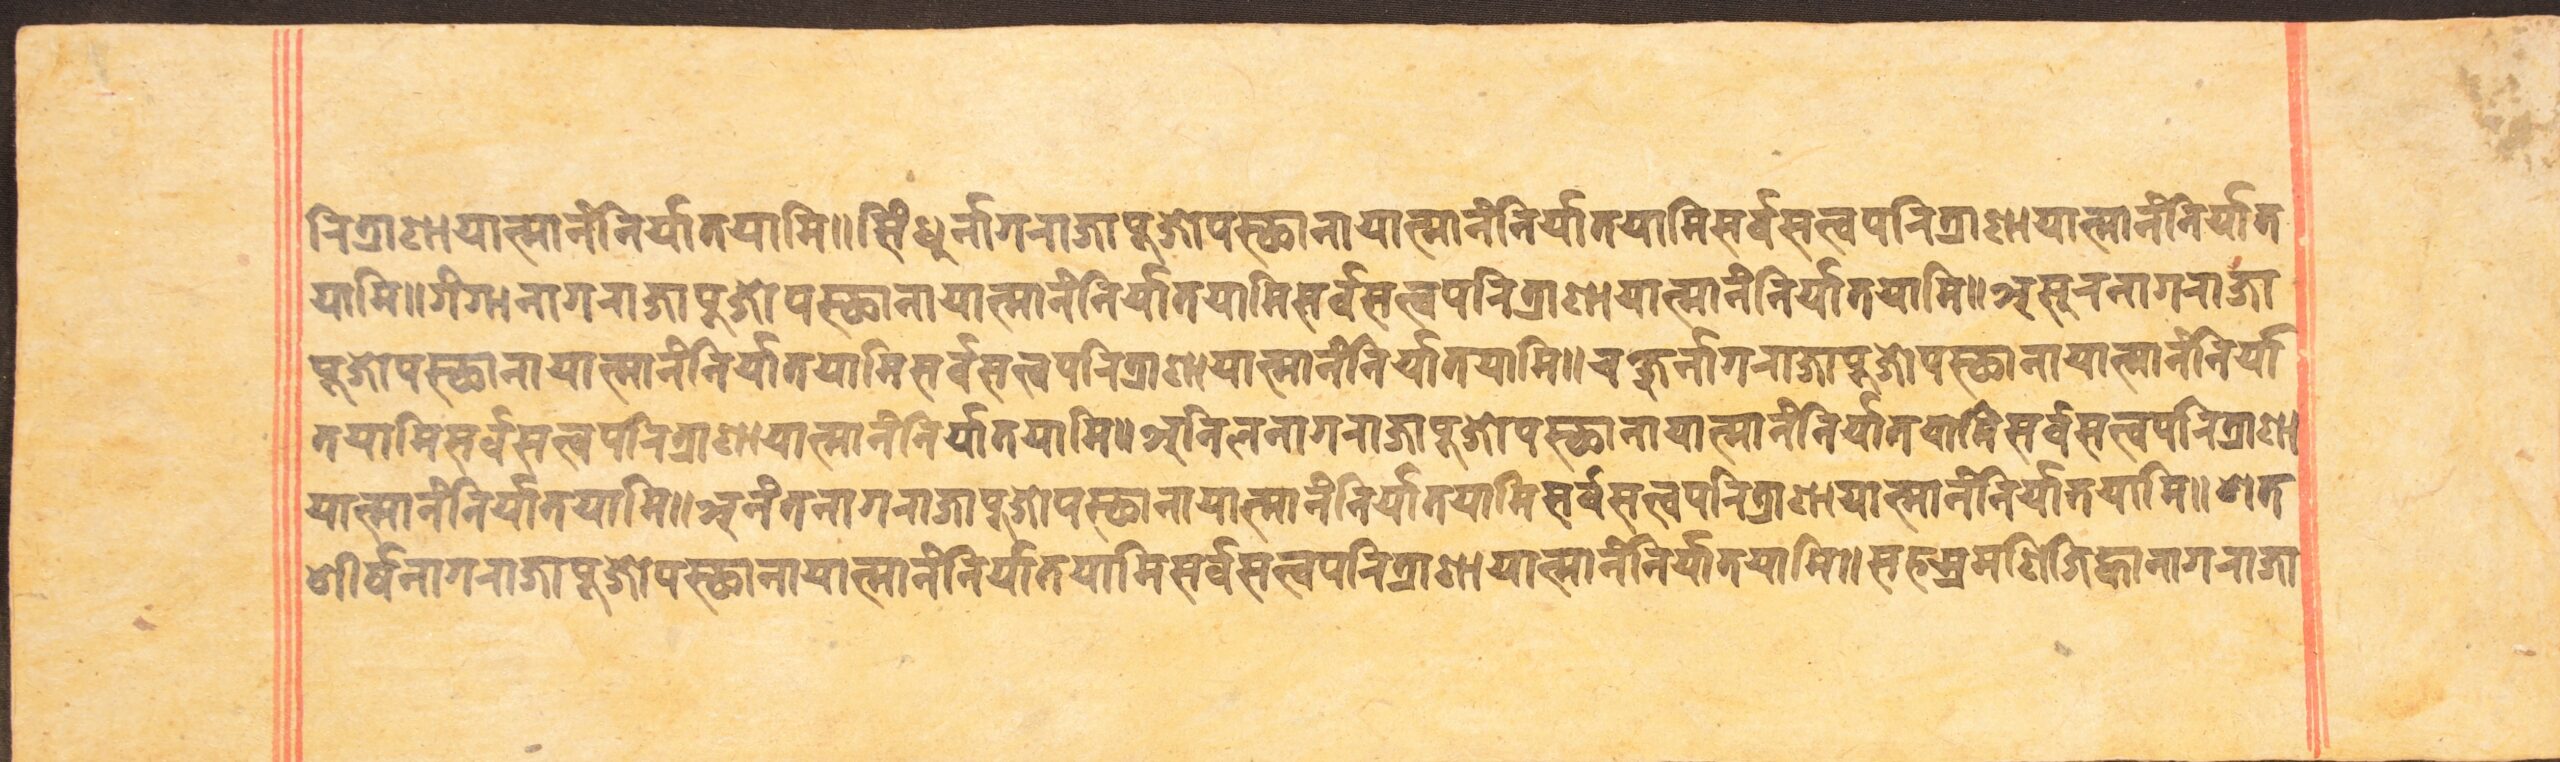 रित्राणायात्मानंनिर्यातयामि॥सिंधुर्नागराजापूजोपस्छानायात्मानंनिर्यातयामिसर्वसत्त्वपरित्राणायात्मानंनिर्यात
यामि॥गंगानागराजापूजोपस्छानायात्मानंनिर्यातयामिसर्वसत्त्वपरित्राणायात्मानंनिर्यातयामि॥असुरनागराजा
पूजोपस्छानायात्मानंनिर्यातयामिसर्वसत्त्वपरित्राणायात्मानंनिर्यातयामि॥चक्षुर्नागराजापूजोपस्छानायात्मानंनिर्या
तयामिसर्वसत्त्वपरित्राणायात्मानंनिर्यातयामि॥अनिलनागराजापूजोपस्छानायात्मानंनिर्यातयामिसर्वसत्त्वपरित्राणा
यात्मानंनिर्यातयामि॥अनंतनागराजापूजोपस्छानायात्मानंनिर्यातयामिसर्वसत्त्वपरित्राणायात्मानंनिर्यातयामि॥शत
शीर्षनागराजापूजोपस्छानायात्मानंनिर्यातयामिसर्वसत्त्वपरित्राणायात्मानंनिर्यातयामि॥सहस्रमणिजिह्वानागराजा